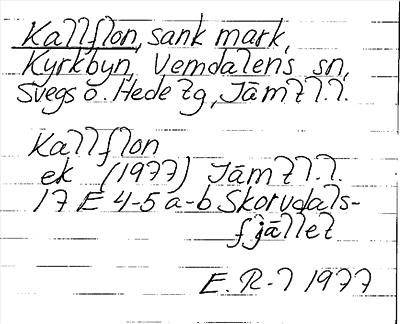 Kallflon, sank mark,
Kyrkbyn, Vemdalens sn,
Svegs o. Hede tg, Jämtl.l.
Kallflon
ek (1977) Jämtl.l.
17 E 4-5 a-b Skorvdals-
fjället
E. R-l 1977